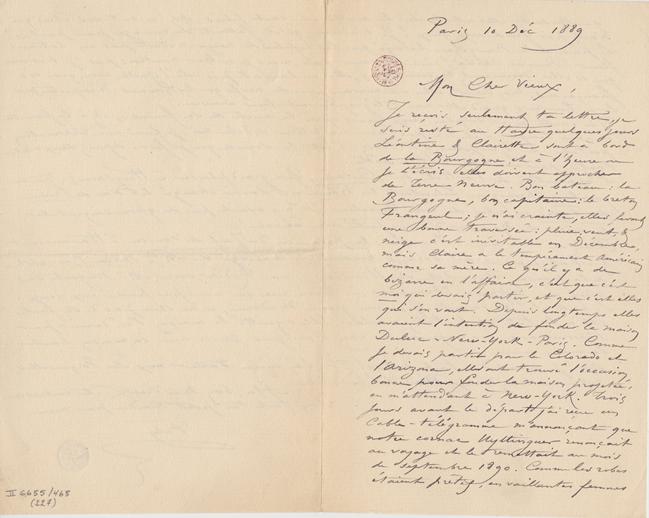 Paris 10 Déc 1889
Mon Cher Vieux,
Je reçois seulement ta lettre, je
suis resté au Havre quelques jours
Léontine & Clairette sont à bord
de la Bourgogne et à l'heure où
je t'écris elles doivent approcher
de Terre Neuve. Bon bateau : la
Bourgogne, bon capitaine : le breton
Frangeul ; je n'ai crainte, elles feront
une bonne traversée : pluie, vent, &
neige c'est inévitable en Décembre,
mais Claire a le tempérament Américain
comme sa mère. Ce qu'il y a de
bizarre en l'affaire, c'est que c'est
moi qui devais partir, et que c'est elles
qui s'en vont. Depuis longtemps elles
avaient l'intention de fonder la maison
Duluc - New-York - Paris. Comme
je devais partir pour le Colorado et
l'Arizona, elles ont trouvé l'occasion
bonne pour fonder la maison projetée,
en m'attendant à New-York. Trois
jours avant le départ j'ai reçu un
Cable-télégramme m'annonçant que
notre cornac renonçait
au voyage et le remettait au mois
de septembre 1890. Comme les robes
étaient prêtes, en vaillantes femmes
II 6655/465
(227)